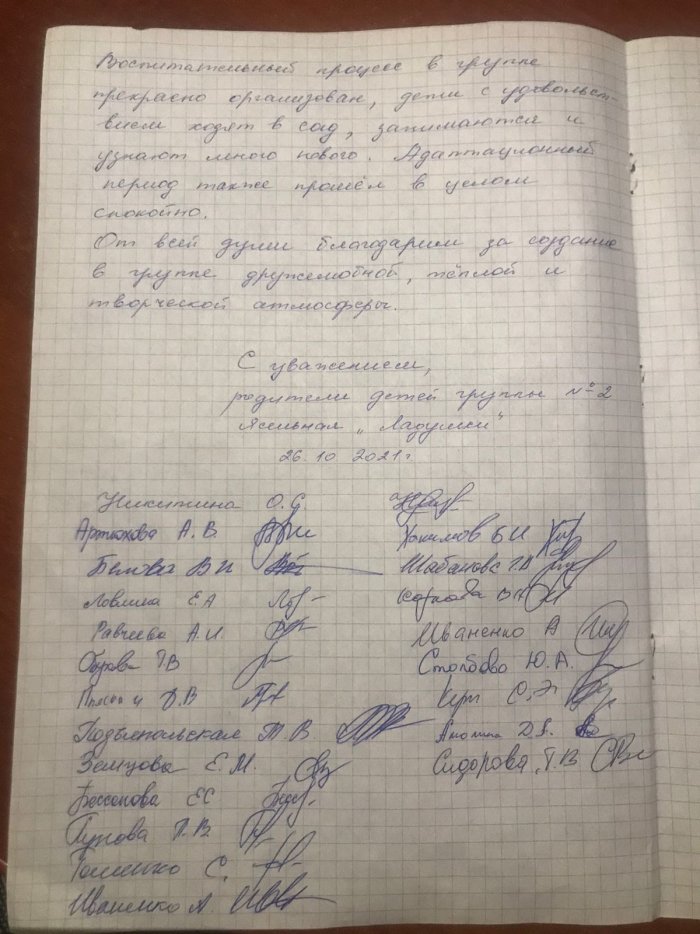 Воспитательный процесс в группе
прекрасно организован, дети с удовольст-
вием ходят в сад, занимаются и
узнают много нового. Адаптационный
период также прошёл в целом
спокойно.
От всей души благодарим за создание
в группе дружелюбной, тёплой и
творческой атмосферы.
С уважением,
родители детей группы №2
Ясельная „Ладушки"
26.10 2021г
Никитина О.С.
Артюхова А.В.
Белова В И
Ловлина Е А
А.И.
Т.В
В.В
Подъяпольская Т В
Земцова Е.М.
Бессонова ЕС
П.В.
С.
Иваненко А.
Хакимов Б И
Шабанова Т.В
Иваненко А
Столбова Ю.А.
Керн О.Э.
Д.А.
Сидорова Т В